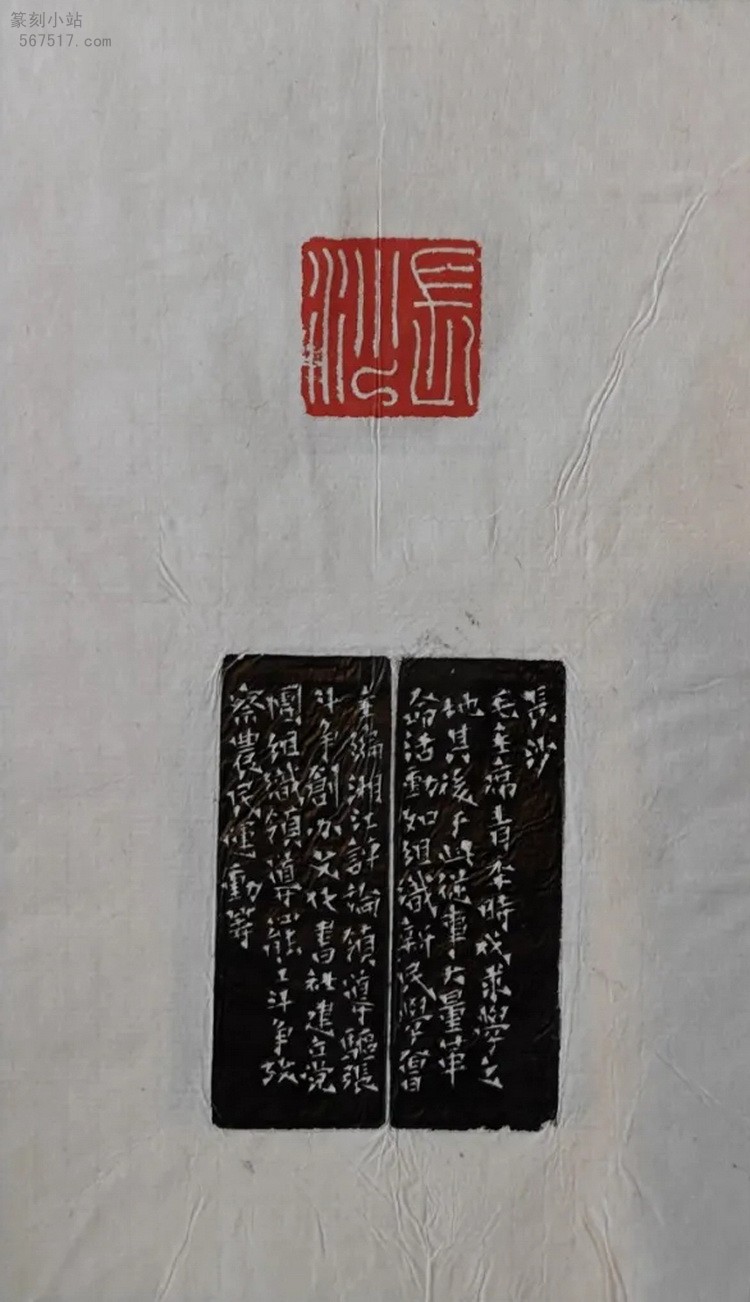 篆刻小站
567517.com
長沙
長沙
毛主席青年時代求學之
地其後于此從事大量革
命活動如組織新民學會
主編湘江評論領導驅張
斗争創办文化書社建立党
團組織領導工斗争攷
察農民運動等